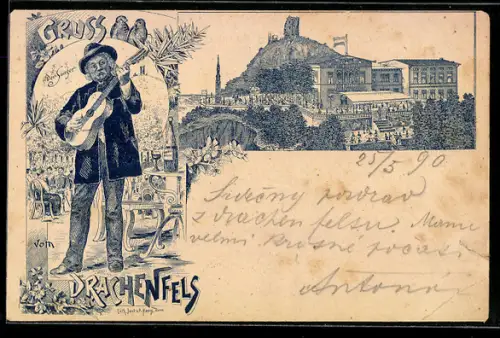 GRUSS
Der Sänger
vom
DRACHENFELS
25/5 90
Srdečný pozdrav
z drachenfelsu. Máme
velmi krásné počasí
Antonín